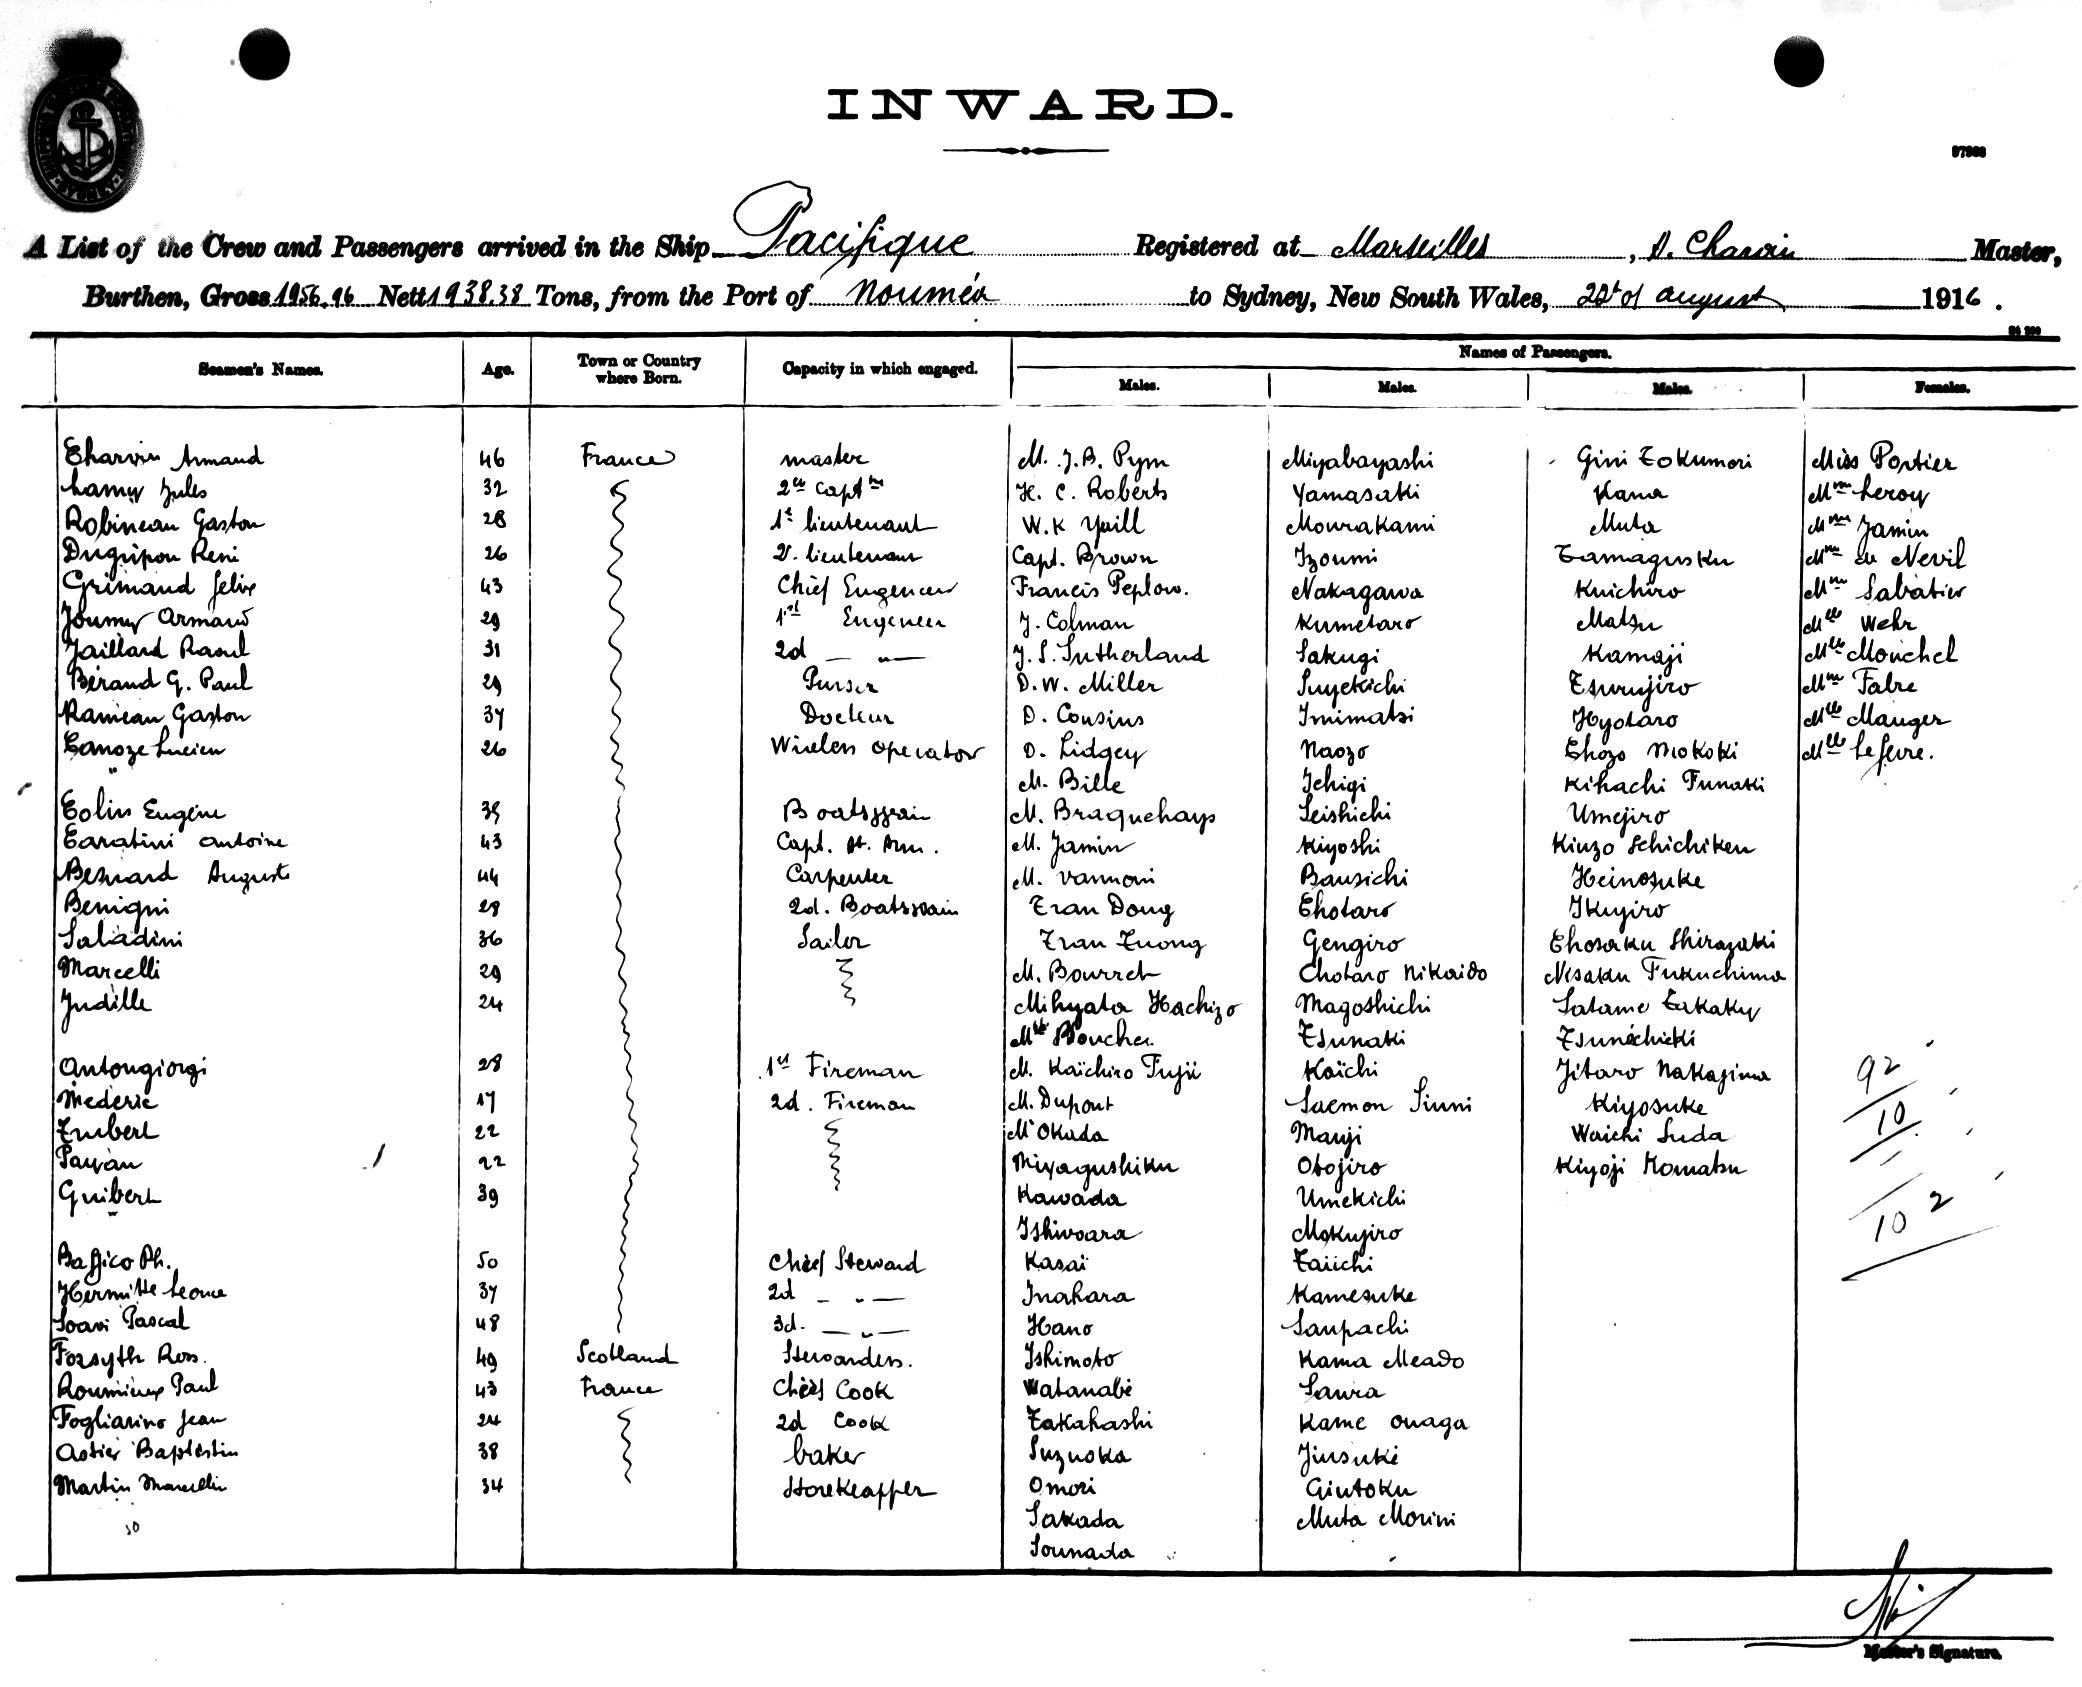 INWARD.
97963
A List of the Crew and Passengers arrived in the Ship Pacifique Registered at Marseilles, A. Charvin Master,
Burthen, Gross 1956.96 Nett 1938.38 Tons, from the Port of Nouméa to Sydney, New South Wales, of august 1916.
Names of Passengers.
Seamen's Names. Age. Town or Country where Born. Capacity in which engaged. Males. Males. Males. Females.
Charvin Armand 46 France master M. J.B. Pym Miyabayashi Gini Tokumori Miss Portier
Lamy Jules 32 2nd Captn H. C. Roberts Yamasaki Kana Mme Leroy
Robineau Gaston 28 1st lieutenant W.K Yuill Mourakami Muta Mme Jamin
Duguipou René 26 2d. lieutenant Capt. Brown Izoumi Tamagusku Mme de Nevil
Grimaud Felix 43 Chief Engeneer Francis Peplow. Nakagawa Kuichiro Mme Sabatier
Joumy Armand 29 1st Engeneer J. Colman Kumetaro Matsu Mlle Wehr
Jaillard Raoul 31 2d — „ — J. S. Sutherland Sakugi Kamaji Mlle Mouchel
Bérand G. Paul 29 Purser D.W. Miller Suyekichi Tsurujiro Mme Fabre
Rameau Gaston 37 Docteur D. Cousins Imimatsi Hyotaro Mlle Mauger
Canoze Lucien 26 Wireless operator D. Lidgey Naozo Chozo Mokoki Mlle Lefevre.
M. Bille Ichigi Kihachi Funaki
Colin Eugène 39 Boatsswain M. Braquehays Seishichi Umejiro
Caratini antoine 43 Capt. At. Arm. M. Jamin Kiyoshi Kinzo Schichiken
Besnard Auguste 44 Carpenter M. Vannoni Bansichi Heinosuke
Benigni 28 2d. Boatsswain Tran Dong Chotaro Ikujiro
Saladini 36 Sailor Tran Tuong Gengiro Chosaku Shirazaki
Marcelli 29 M. Bourret Chotaro Nikaido Nisaku Fukuchima
Judille 24 Mihyata Hachizo Magoshichi Satame Takaky
Boucher Tsunaki Tsunéchicki
Antongiorgi 28 1st Fireman M. Kaïchiro Fujii Kaïchi Jitaro Nakajima 92
Mederic 17 2d. Fireman M. Dupont Saemon Siuni Kiyosuke 10
Imbert 22 M. Okada Manji Waichi Suda
Payan 22 Miyagushiku Otojiro Kiyoji Komatsu
Guibert 39 Kawada Umekichi 102
Ishiwara Mokujiro
Baffico Ph. 50 Chief Steward Kasaï Taiichi
Hermitte Leonce 37 2d — „ — Inahara Kamesuke
Soavi Pascal 48 3d. — „ — Hano Sanpachi
Forsyth Ross. 49 Scotland Stewardess. Ishimoto Kama Meado
Roumieux Paul 43 France Chief Cook Watanabé Saura
Fogliarino Jean 24 2d Cook Takahashi Kame Onaga
Astier Baptistin 38 baker Suzuoka Jinsuké
Martin Marcellin 34 Storekeapper Omori Giutoku
30 Sakada Muta Morini
Sounada
Master's Signature.